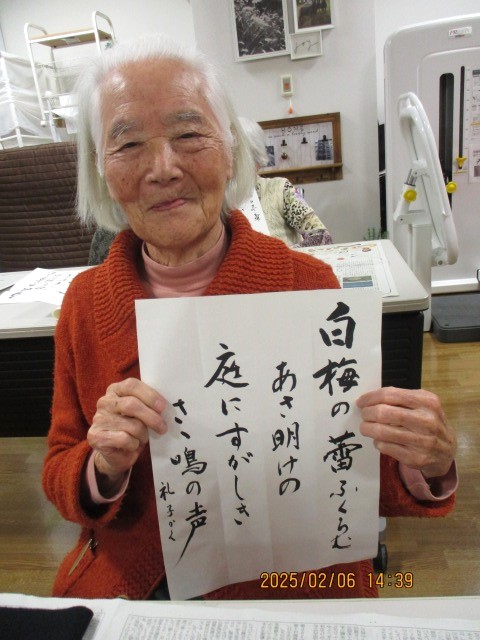 白梅の蕾ふくらむ
あさ明けの
庭にすがしき
さゝ鳴の声
礼子かく
2025/02/06 14:39